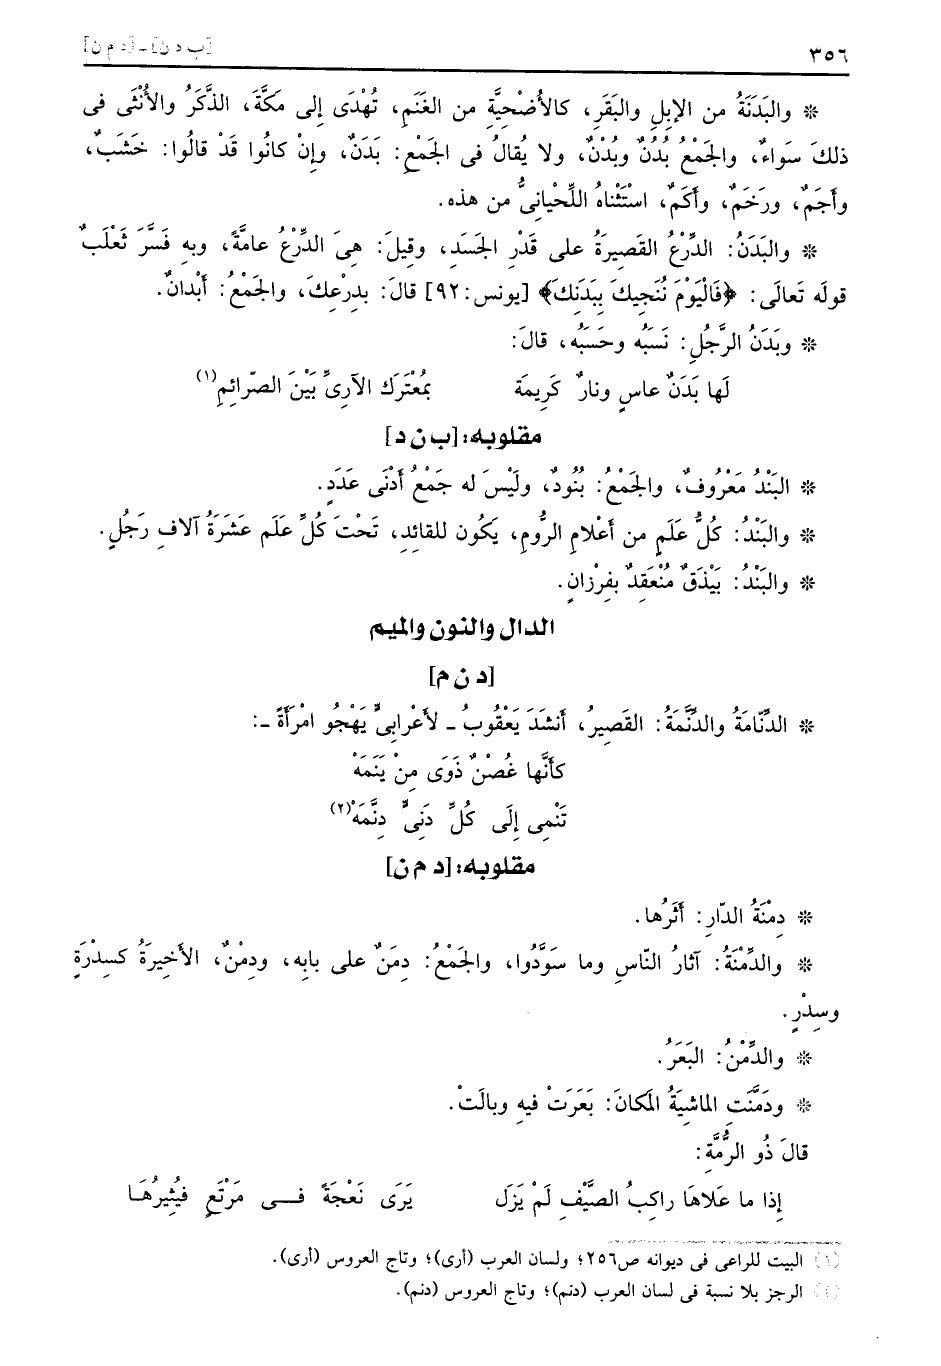 ٣٥٦ [ب د ن] - [د م ن]
❊ والبَدَنَةُ من الإبِلِ والبَقَرِ، كالأُضْحِيَّةِ من الغَنَمِ، تُهْدَى إلى مَكَّةَ، الذَّكَرُ والأُنْثَى فى
ذلكَ سَواءٌ، والجَمْعُ بُدُنٌ وبُدْنٌ، ولا يُقالُ فى الجَمْعِ: بَدَنٌ، وإنْ كانُوا قَدْ قالُوا: خَشَبٌ،
وأَجَمٌ، ورَخَمٌ، وأَكَمٌ، اسْتَثْناهُ اللِّحْيانِىُّ من هذه.
❊ والبَدَنُ: الدِّرْعُ القَصِيرَةُ على قَدْرِ الجَسَدِ، وقِيلَ: هِىَ الدِّرْعُ عامَّةً، وبه فَسَّرَ ثَعْلَبٌ
قولَه تَعالَى: ﴿فَالْيَوْمَ نُنَجِيكَ بِبَدَنِكَ﴾ [يونس: ٩٢] قالَ: بدِرْعِكَ، والجَمْعُ: أَبْدانٌ.
❊ وبَدَنُ الرَّجُلِ: نَسَبُه وحَسَبُه، قالَ:
لَها بَدَنٌ عاسٍ ونارٌ كَرِيمَة بمُعْتَرَكِ الآرِىِّ بَيْنَ الصَّرائِمِ(١)
مقلوبه: [ب ن د]
❊ البَنْدُ مَعْرُوفٌ، والجَمْعُ: بُنُودٌ، ولَيْسَ له جَمْعُ أَدْنَى عَدَدٍ.
❊ والبَنْدُ: كُلُّ عَلَمٍ من أعْلامِ الرُّومِ، يَكُون للقائِدِ، تَحْتَ كُلِّ عَلَمٍ عَشَرَةُ آلافِ رَجُلٍ.
❊ والبَنْدُ: بَيْذَقٌ مُنْعَقِدٌ بفِرْزانٍ.
الدال والنون والميم
[د ن م]
❊ الدِّنَّامَةُ والدِّنَّمَةُ: القَصِيرُ، أنشَدَ يَعْقُوبُ ـ لأعْرابِىٍّ يَهْجُو امْرأَةً ـ:
كأنَّها غُصْنٌ ذَوَى مِنْ يَنَمَهْ
تَنْمِى إلَى كُلِّ دَنِىٍّ دِنَّمَهْ(٢)
مقلوبه: [د م ن]
❊ دِمْنَةُ الدّارِ: أَثَرُها.
❊ والدِّمْنَةُ: آثارُ النّاسِ وما سَوَّدُوا، والجَمْعُ: دِمَنٌ على بابِه، ودِمْنٌ، الأخِيرَةُ كسِدْرَةٍ
وسِدْرٍ.
❊ والدِّمْنُ: البَعَرُ.
❊ ودَمَّنَتِ الماشِيَةُ المَكانَ: بَعَرَتْ فيهِ وبالَتْ.
قالَ ذُو الرُّمَّةِ:
إذا ما عَلاهَا راكِبُ الصَّيْفِ لَمْ يَزَلْ يَرَى نَعْجَةً فــى مَرْتَعٍ فيُثِيرُهَـا
(١) البيت للراعى فى ديوانه ص٢٥٦؛ ولسان العرب (أرى)؛ وتاج العروس (أرى).
(٢) الرجز بلا نسبة فى لسان العرب (دنم)؛ وتاج العروس (دنم).